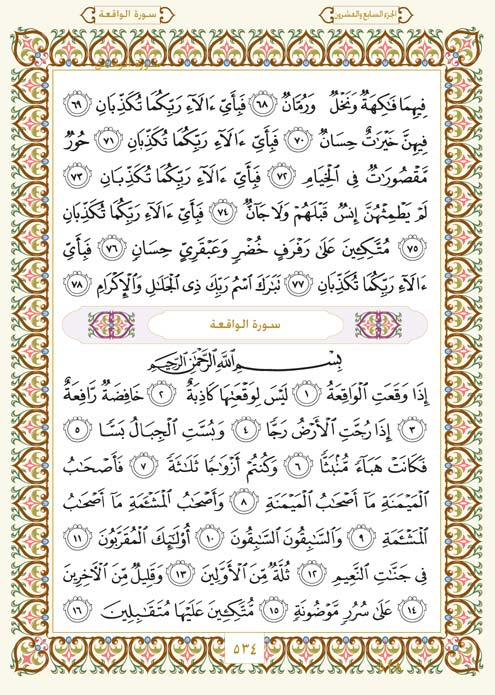 سورة الواقعة
الجزء السابع والعشرون
فِيهِمَا فَٰكِهَةٌ وَنَخْلٌ وَرُمَّانٌ ٦٨ فَبِأَيِّ ءَالَآءِ رَبِّكُمَا تُكَذِّبَانِ ٦٩
فِيهِنَّ خَيْرَٰتٌ حِسَانٌ ٧٠ فَبِأَيِّ ءَالَآءِ رَبِّكُمَا تُكَذِّبَانِ ٧١ حُورٌ
مَّقْصُورَٰتٌ فِى ٱلْخِيَامِ ٧٢ فَبِأَيِّ ءَالَآءِ رَبِّكُمَا تُكَذِّبَانِ ٧٣
لَمْ يَطْمِثْهُنَّ إِنسٌ قَبْلَهُمْ وَلَا جَآنٌّ ٧٤ فَبِأَيِّ ءَالَآءِ رَبِّكُمَا تُكَذِّبَانِ
٧٥ مُتَّكِـِٔينَ عَلَىٰ رَفْرَفٍ خُضْرٍ وَعَبْقَرِيٍّ حِسَانٍ ٧٦ فَبِأَيِّ
ءَالَآءِ رَبِّكُمَا تُكَذِّبَانِ ٧٧ تَبَٰرَكَ ٱسْمُ رَبِّكَ ذِى ٱلْجَلَٰلِ وَٱلْإِكْرَامِ ٧٨
سورة الواقعة
بِسْمِ ٱللَّهِ ٱلرَّحْمَٰنِ ٱلرَّحِيمِ
إِذَا وَقَعَتِ ٱلْوَاقِعَةُ ١ لَيْسَ لِوَقْعَتِهَا كَاذِبَةٌ ٢ خَافِضَةٌ رَّافِعَةٌ
٣ إِذَا رُجَّتِ ٱلْأَرْضُ رَجًّا ٤ وَبُسَّتِ ٱلْجِبَالُ بَسًّا ٥
فَكَانَتْ هَبَآءً مُّنۢبَثًّا ٦ وَكُنتُمْ أَزْوَٰجًا ثَلَٰثَةً ٧ فَأَصْحَٰبُ
ٱلْمَيْمَنَةِ مَآ أَصْحَٰبُ ٱلْمَيْمَنَةِ ٨ وَأَصْحَٰبُ ٱلْمَشْـَٔمَةِ مَآ أَصْحَٰبُ
ٱلْمَشْـَٔمَةِ ٩ وَٱلسَّٰبِقُونَ ٱلسَّٰبِقُونَ ١٠ أُو۟لَٰٓئِكَ ٱلْمُقَرَّبُونَ ١١
فِى جَنَّٰتِ ٱلنَّعِيمِ ١٢ ثُلَّةٌ مِّنَ ٱلْأَوَّلِينَ ١٣ وَقَلِيلٌ مِّنَ ٱلْءَاخِرِينَ
١٤ عَلَىٰ سُرُرٍ مَّوْضُونَةٍ ١٥ مُّتَّكِـِٔينَ عَلَيْهَا مُتَقَٰبِلِينَ ١٦
٥٣٤